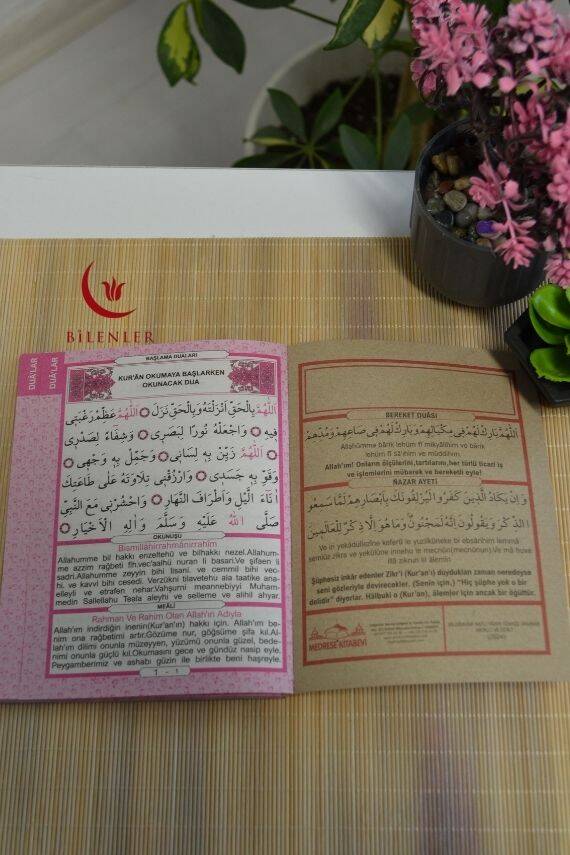 BİLENLER
DUÂ'LAR
DUÂ'LAR
BAŞLAMA DUALARI
KUR'ÂN OKUMAYA BAŞLARKEN
OKUNACAK DUA
اَللّٰهُمَّ بِالْحَقِّ اَنْزَلْتَهُ وَبِالْحَقِّ نَزَلَ اَللّٰهُمَّ عَظِّمْ رَغْبَتِى
فِيهِ وَاجْعَلْهُ نُورًا لِبَصَرِى وَشِفَاءً لِصَدْرِى
اَللّٰهُمَّ زَيِّنْ بِهِ لِسَانِى وَجَمِّلْ بِهِ وَجْهِى
وَقَوِّ بِهِ جَسَدِى وَارْزُقْنِى تِلَاوَتَهُ عَلٰى طَاعَتِكَ
اٰنَاءَ الَّيْلِ وَاَطْرَافَ النَّهَارِ وَاحْشُرْنِى مَعَ النَّبِىِّ
صَلَّى اللّٰهُ عَلَيْهِ وَسَلَّمَ وَاٰلِهِ الْاَخْيَارِ
OKUNUŞU
Bismillâhirrahmânirrahîm
Allahumme bil hakkı enzeltehü ve bilhakkı nezel.Allahum-
me azzim rağbeti fîh.vec'aalhü nuran li basari.Ve şifaen li
sadri.Allahumme zeyyin bihi lisani. ve cemmil bihi vec-
hi. ve kavvi bihi cesedi. Verzükni tilavetehu ala taatike ana-
elleyli ve etrafen nehar.Vahşurni meannebiyyi Muham-
medin Sallellahu Teala aleyhi ve selleme ve alihil ahyar.
MEÂLİ
Rahman Ve Rahim Olan Allah'ın Adıyla
Allah'ım indirdiğin inenin(Kur'an'ın) hakkı için. Allah'ım be-
nim ona rağbetimi artır.Gözüme nur, göğsüme şifa kıl.Al-
lah'ım dilimi onunla müzeyyen, yüzümü onunla güzel, bede-
nimi onunla güçlü kıl.Okumasını gece ve gündüz nasip eyle.
Peygamberimiz ve ashabı güzin ile birlikte beni haşreyle.
1 - 1
BEREKET DUÂSI
اَللّٰهُمَّ بَارِكْ لَهُمْ فِى مِكْيَالِهِمْ وَبَارِكْ لَهُمْ فِى صَاعِهِمْ وَمُدِّهِمْ
Allahümme bârik lehüm fî mikyâlihim ve bârik
lehüm fî sâ'ihim ve müddihim.
Allah'ım! Onların ölçülerini,tartılarını,her türlü ticari iş
ve işlemlerini mübarek ve bereketli eyle!
NAZAR AYETİ
وَاِنْ يَكَادُ الَّذِينَ كَفَرُوا لَيُزْلِقُونَكَ بِاَبْصَارِهِمْ لَمَّا سَمِعُوا
الذِّكْرَ وَيَقُولُونَ اِنَّهُ لَمَجْنُونٌ وَمَا هُوَ اِلَّا ذِكْرٌ لِلْعَالَمِينَ
Ve in yekâdüllezîne keferû le yuzlikûneke bi ebsârihim lemmâ
semiûz zikra ve yekûlûne innehu le mecnûn(mecnûnun).Ve mâ huve
illâ zikrun lil âlemîn.
Şüphesiz inkâr edenler Zikr'i (Kur'an'ı) duydukları zaman neredeyse
seni gözleriyle devirecekler. (Senin için,) "Hiç şüphe yok o bir
delidir" diyorlar. Hâlbuki o (Kur'an), âlemler için ancak bir öğüttür.
MEDRESE KİTABEVİ